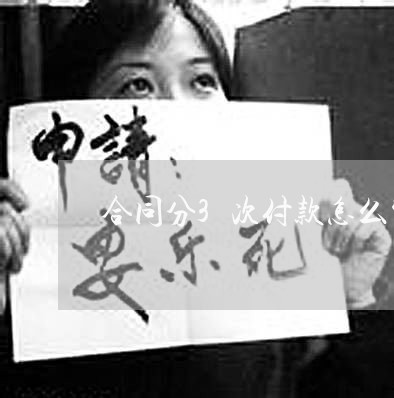 申請：
合同分3 次付款怎么
安乐死